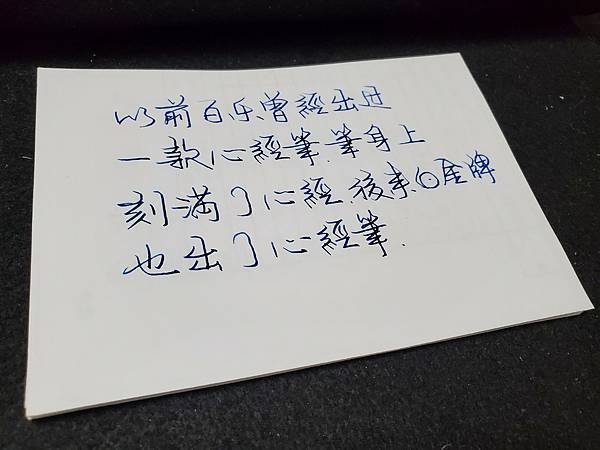 以前百乐曾經出過
一款心經筆.筆身上
刻滿了心經.後來白金牌
也出了心經筆.